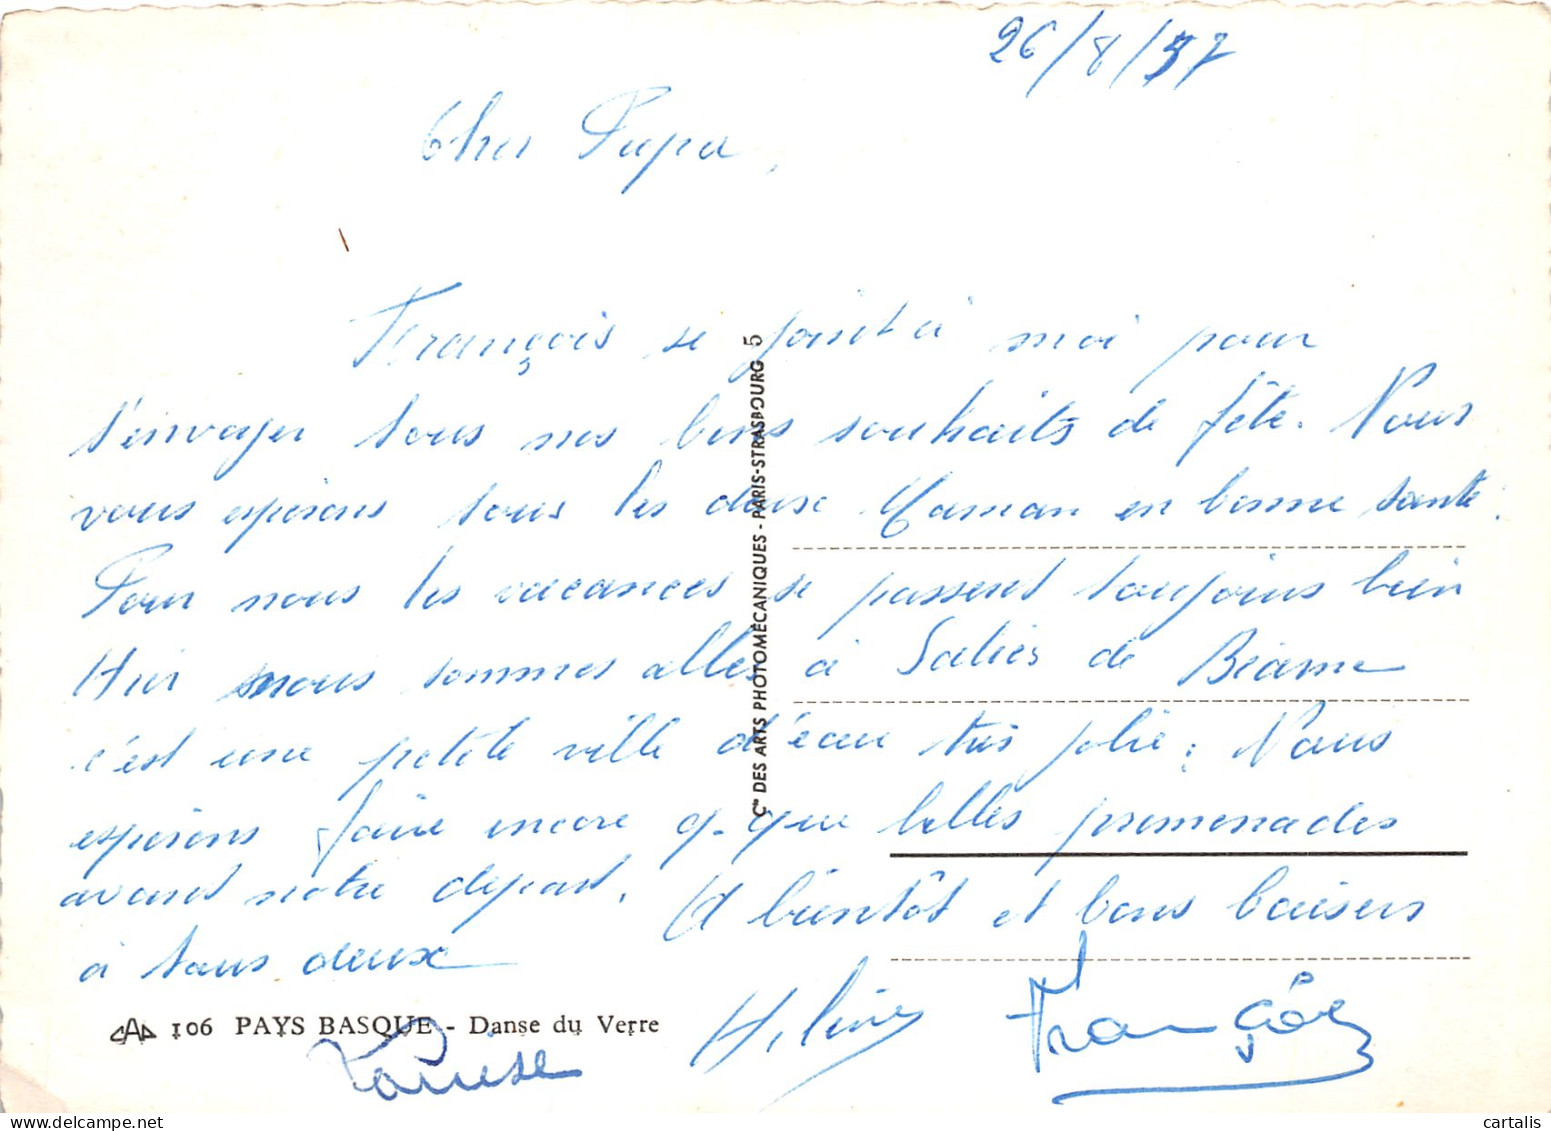 26/8/57
Cher Papa,
François se joint à moi pour
t'envoyer tous nos bons souhaits de fête. Nous
vous espérons tous les deux Maman en bonne santé.
Pour nous les vacances se passent toujours bien
Hier nous sommes allés à Salies de Béarn
c'est une petite ville d'eau très jolie. Nous
espérons faire encore q. que belles promenades
avant notre départ. A bientôt et bons baisers
à tous deux
Hélène
François
106 PAYS BASQUE - Danse du Verre
Cie DES ARTS PHOTOMÉCANIQUES - PARIS-STRASBOURG 5
cartalis